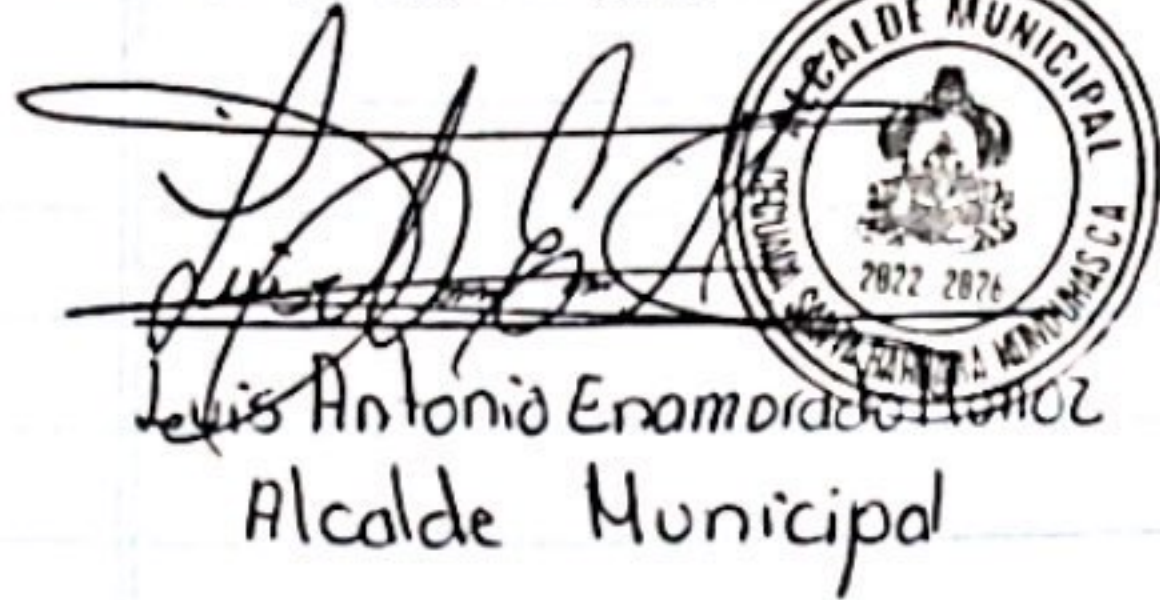 ALCALDE MUNICIPAL
2022 2026
SANTA BARBARA HONDURAS C A
Luis Antonio Enamorado Muñoz
Alcalde Municipal